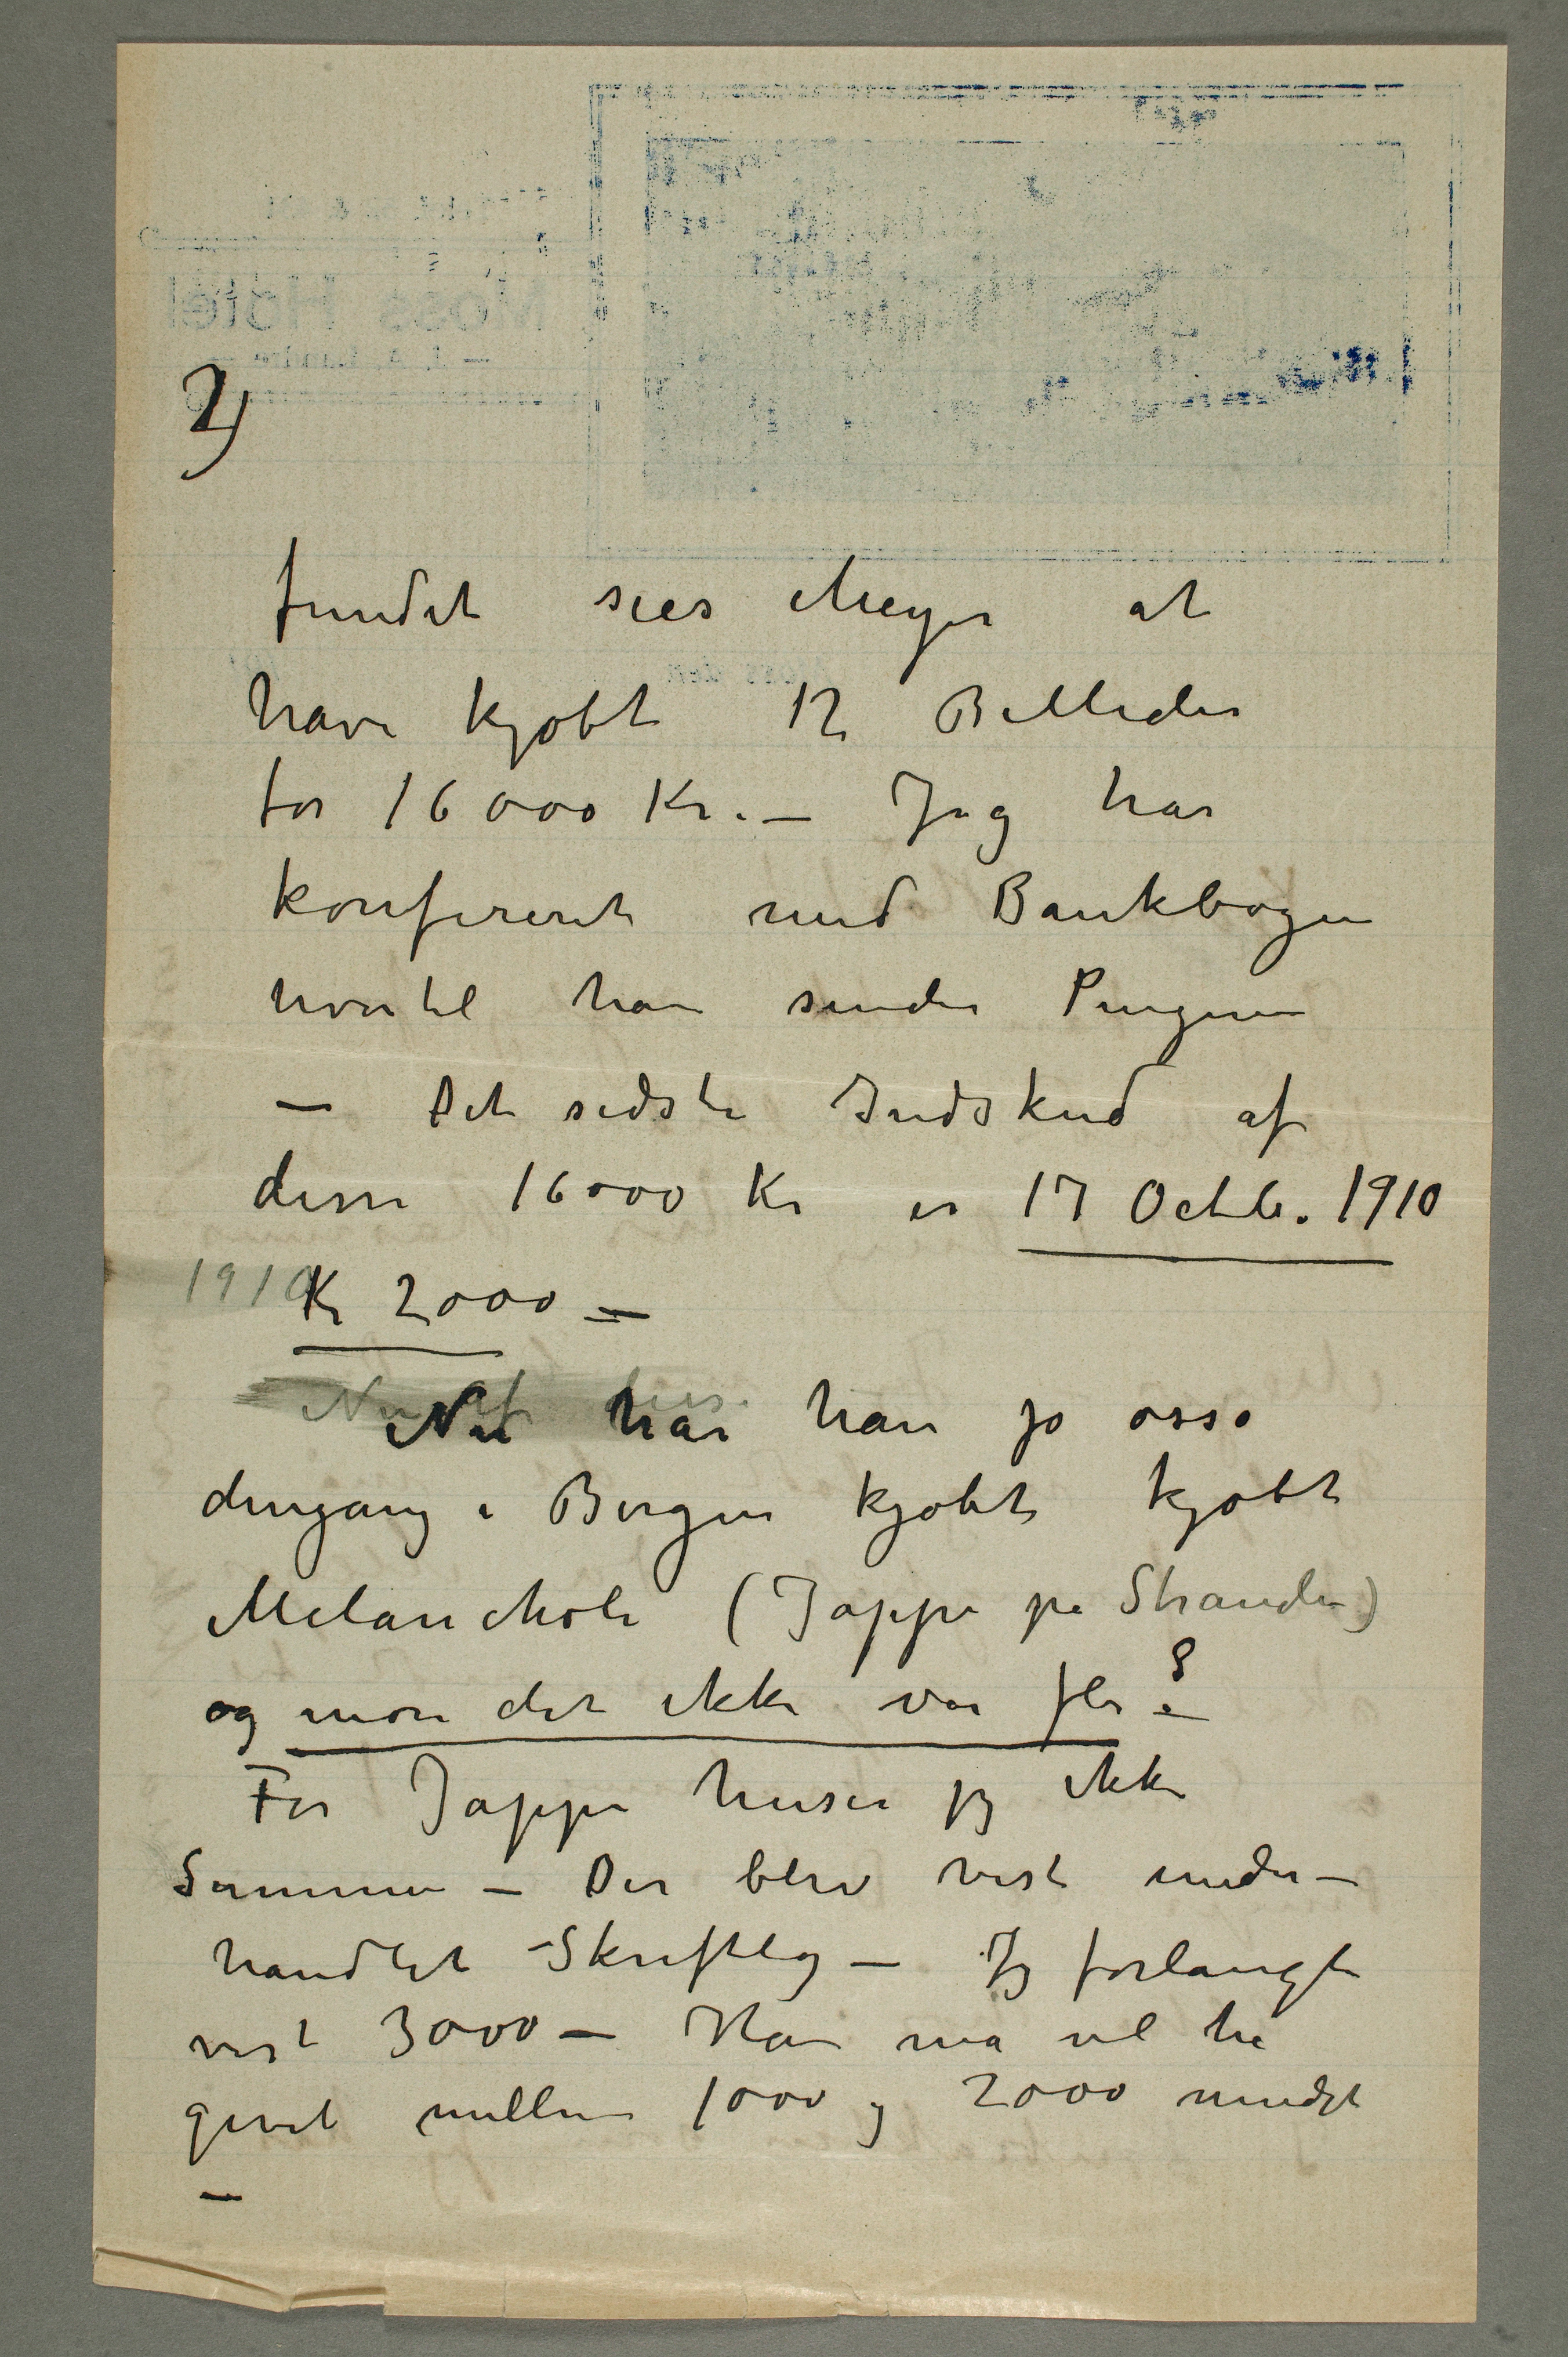 2)
fundet sies Meyer at
have kjøbt 12 Billeder
for 16000 Kr. – Jeg har
konfereret med Bankbogen
hvortil han sender Pengene
– Det sidste Indskud af
disse 16000 Kr er 17 Octb. 1910
1910 Kr 2000 –
Nu har han jo osså
dengang i Bergen kjøbt kjøbt
Melancholi (Jappe på Stranden)
og mon det ikke var fler?
For Jappe husker jeg ikke
Summen – Der blev vist under-
handlet Skriftlig – Jeg forlangte
vist 3000 – Han må vel ha
givet mellem 1000 og 2000 mindst
–
Moss Hotel